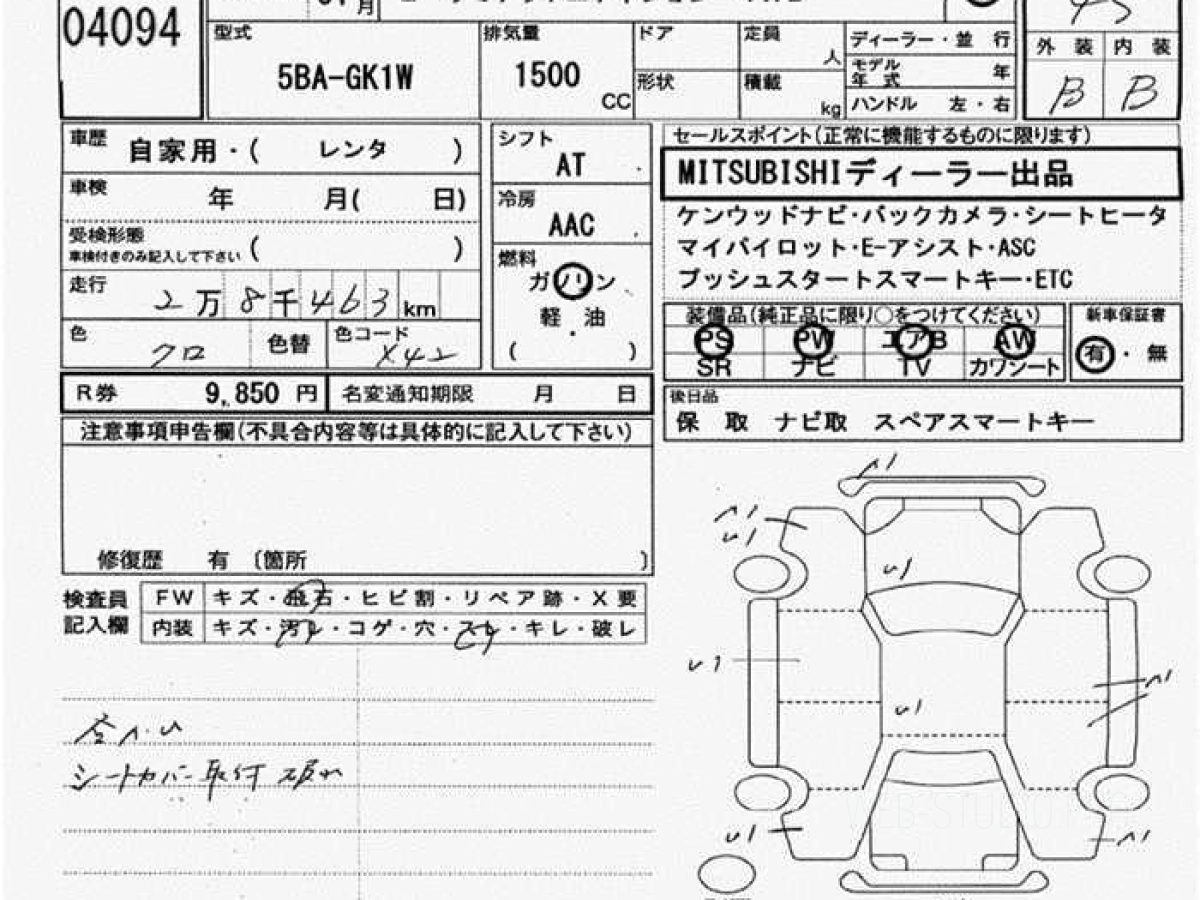 04094
月
型式
5BA-GK1W
排気量
1500
CC
ドア
形状
定員
人
積載
kg
ディーラー・並 行
モデル年式 年
ハンドル 左・右
外 装 内 装
B B
車歴
自家用・( レンタ )
車検
年 月( 日)
受検形態
車検付きのみ記入して下さい ( )
走行
2万8千463km
色
クロ
色替
色コード
X42
シフト
AT
冷房
AAC
燃料
ガソリン
軽・油
( )
セールスポイント(正常に機能するものに限ります)
MITSUBISHIディーラー出品
ケンウッドナビ・バックカメラ・シートヒータ
マイパイロット・E-アシスト・ASC
プッシュスタートスマートキー・ETC
装備品(純正品に限り○をつけてください)
PS PW エアB AW
SR ナビ TV カワシート
新車保証書
有・無
R券 9,850 円
名変通知期限 月 日
後日品
保 取 ナビ取 スペアスマートキー
注意事項申告欄(不具合内容等は具体的に記入して下さい)
修復歴 有 〔箇所 〕
検査員
記入欄
FW キズ・飛石・ヒビ割・リペア跡・X要
内装 キズ・汚レ・コゲ・穴・スレ・キレ・破レ
シートカバー取付